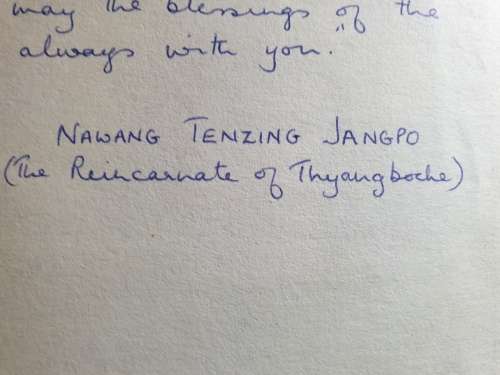 may the blessings of the
always with you.
NAWANG TENZING JANGPO
(The Reincarnate of Thyangboche)